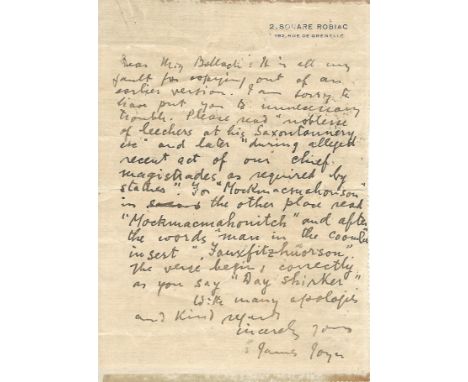 2, SQUARE ROBIAC
192, RUE DE GRENELLE
Dear Miss : It is all my
fault for copying out of an
earlier version. I am sorry to
have put you to unnecessary
trouble. Please read "noblesse
of leechers at his Saxontannery
" and later "during alleged
recent act of our chief
magistrades as required by
statues". For "Mockmacmahonson"
in the other place read
"Mockmacmahonitch" and after
the words "man in the coombe"
insert "Fauxfitzhuorson".
The verse begins, correctly
as you say "Day shirker"
With many apologies
and kind regards
sincerely yours
James Joyce